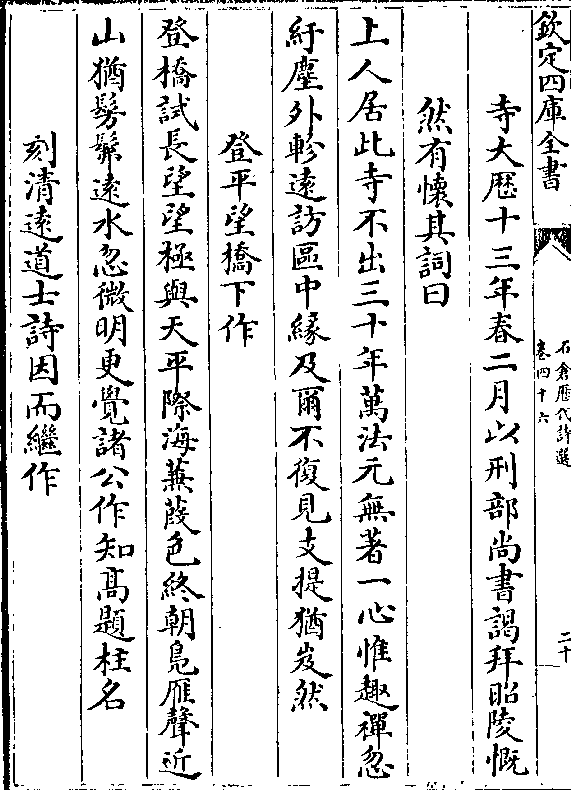 欽定四庫全書
石倉歷代詩選
卷四十六
二十
寺大厯十三年春二月以刑部尚書謁拜昭陵慨
然有懷其詞曰
上人居此寺不出三十年萬法元無著一心惟趣禪忽
紆塵外軫遠訪區中緣及爾不復見支提猶岌然
登平望橋下作
登橋試長望望極與天平際海蒹葭色終朝鳬雁聲近
山猶髣髴遠水忽微明更覺諸公作知髙題柱名
刻清遠道士詩因而繼作